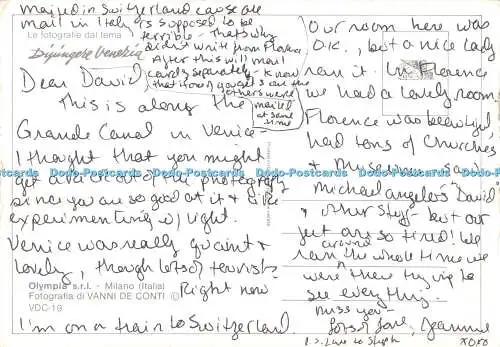 mailed in Switzerland cause all
mail in Italy is supposed to be
terrible - that's why
didn't write from Florence
After this will mail
cards separately - know
that some of you get all the
others were
mailed
at same
time
Le fotografie dal tema
Dipingere Venezia
Dear David
This is along the
Grande Canal in Venice -
I thought that you might
get a kick out of the photography
since you are so good at it & like
experimenting w/ light.
Venice was really quaint &
lovely, though lots of tourists?
Right now
I'm on a train to Switzerland.
Olympia s.r.l. - Milano (Italia)
Fotografia di VANNI DE CONTI ©
VDC-19
Our room here was
O.K., but a nice lady
ran it. In Florence
we had a lovely room
Florence was beautiful
had tons of churches
& museums - saw
Michael angelo's "David"
& other stuff - but our
feet are so tired! We
ran around the whole time we
were there trying to
see everything.
Miss you -
Lots of love, Jeannie
P.S. Love to Steph
XOXO
Dodo-Postcards Dodo-Postcards Dodo-Postcards Dodo-Postcards